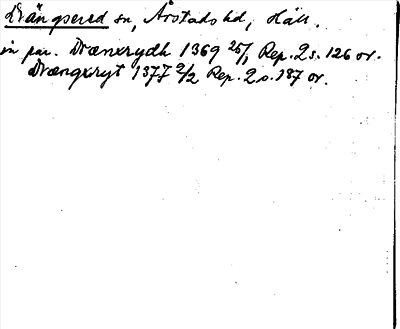 Drängsered sn, Årstads hd, Hall.
in par. Drænxrydh 1369 25/1 Rep. 2 s. 126 or.
Drængxryt 1377 2/2 Rep. 2 s. 187 or.